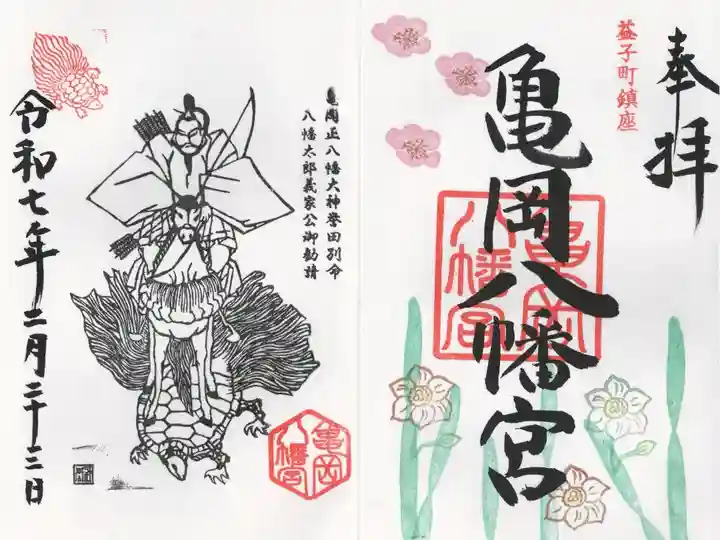 奉拝
益子町鎮座
亀岡八幡宮
亀岡八幡宮
亀岡正八幡大神誉田別命
八幡太郎義家公御勧請
亀岡八幡宮
令和七年二月二十三日